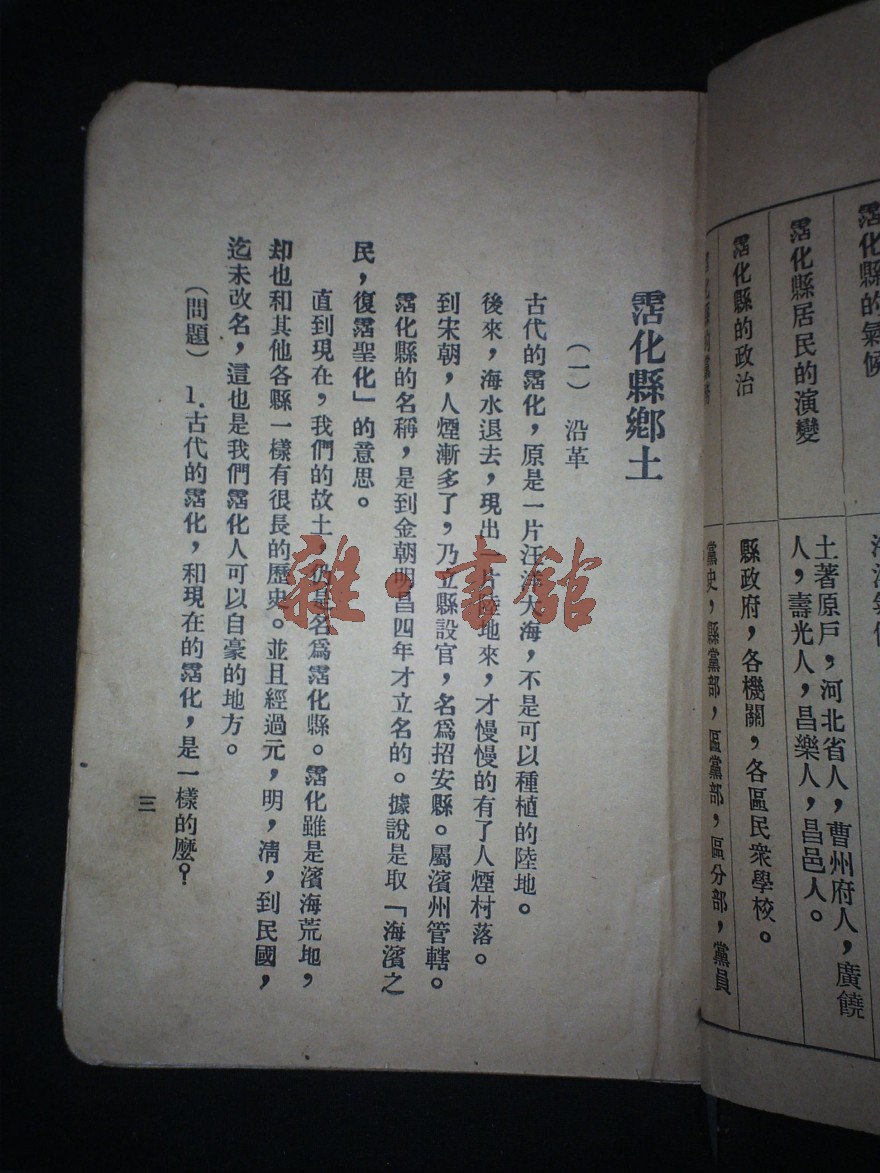 霑化縣的氣候
霑化縣居民的演變
土著原戶，河北省人，曹州府人，廣饒
人，壽光人，昌樂人，昌邑人。
霑化縣的政治
縣政府，各機關，各區民衆學校。
黨史，縣黨部，區黨部，區分部，黨員
霑化縣鄉土
（一）　沿革
古代的霑化，原是一片汪洋大海，不是可以種植的陸地。
後來，海水退去，現出一片陸地來，才慢慢的有了人煙村落。
到宋朝，人煙漸多了，乃立縣設官，名爲招安縣。屬濱州管轄。
霑化縣的名稱，是到金朝明昌四年才立名的。據說是取「海濱之
民，復霑聖化」的意思。
直到現在，我們的故土，仍是名爲霑化縣。霑化雖是濱海荒地，
却也和其他各縣一樣有很長的歷史。並且經過元，明，清，到民國，
迄未改名，這也是我們霑化人可以自豪的地方。
（問題）　1.古代的霑化，和現在的霑化，是一樣的麼？
三
雜·書館